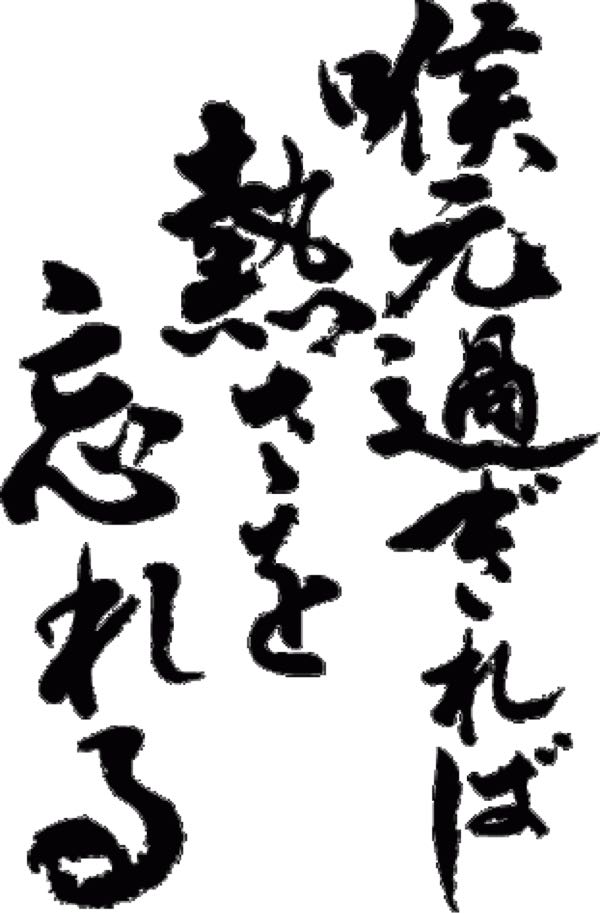 喉元過ぎれば
熱さを
忘れる